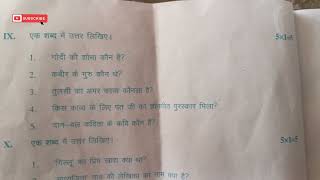 SUBSCRIBE
IX. एक शब्द में उत्तर लिखिए। 5x1=5
1. गोदी की शोभा कौन है?
2. कबीर के गुरु कौन थे?
3. तुलसी का अमर काव्य कौनसा है?
4. किस काव्य के लिए पंत जी का ज्ञानपीठ पुरस्कार मिला?
5. दान-बल कविता के कवि कौन हैं?
X. एक शब्द में उत्तर लिखिए। 5x1=5
1. 'गिल्लू' का प्रिय खाद्य क्या था?
की लेखिका का नाम क्या है?